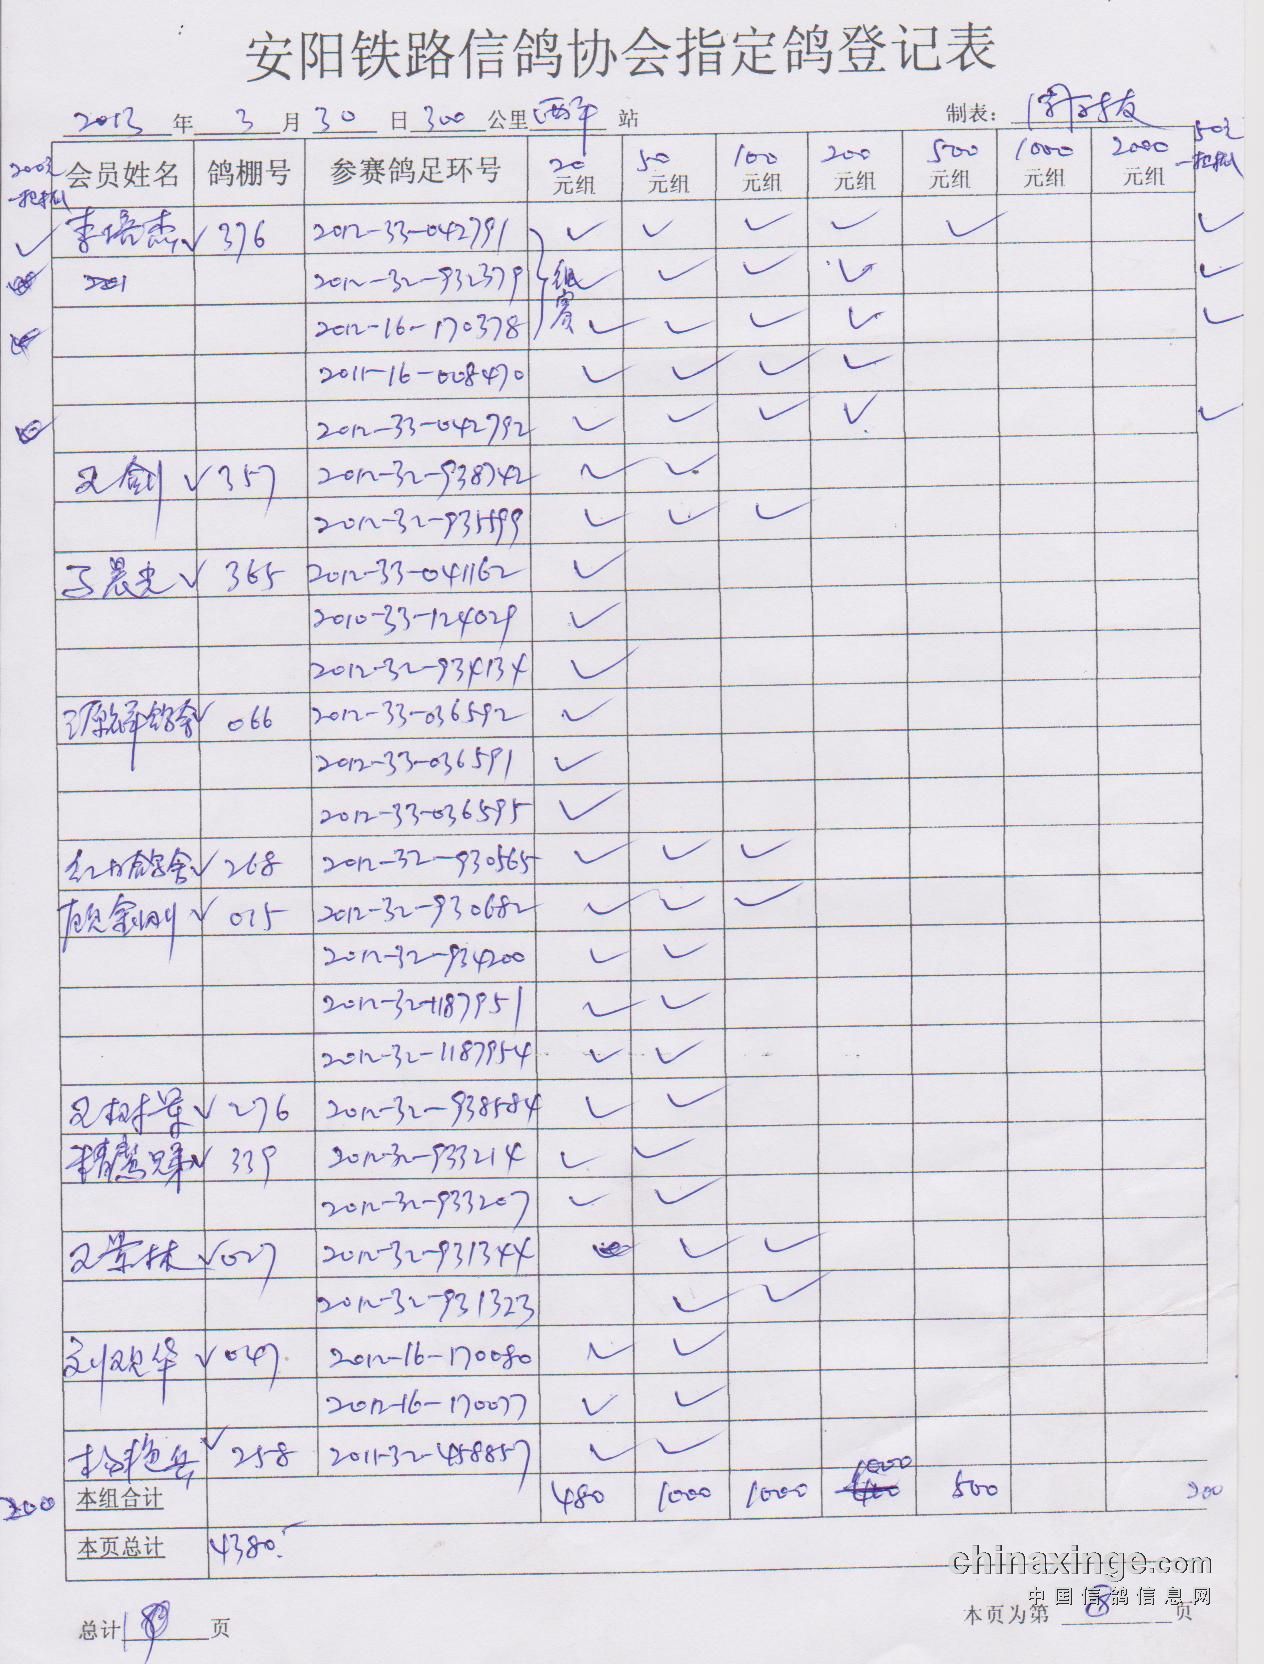 安阳铁路信鸽协会指定鸽登记表
2013年3月30日300公里西平站 制表：
200元一把抓 会员姓名 鸽棚号 参赛鸽足环号 20元组 50元组 100元组 200元组 500元组 1000元组 2000元组 50元一把抓
✓ 李培杰✓ 376 2012-33-042791 ✓ ✓ ✓ ✓ ✓ ✓
2012-32-932379 组赛 ✓ ✓ ✓ ✓ ✓
2012-16-170378 ✓ ✓ ✓ ✓ ✓
2011-16-008470 ✓ ✓ ✓ ✓
2012-33-042792 ✓ ✓ ✓ ✓ ✓
又剑 ✓ 357 2012-32-938742 ✓ ✓
2012-32-935599 ✓ ✓ ✓
晨光 ✓ 365 2012-33-041162 ✓
2010-33-124029 ✓
2012-32-934134 ✓
✓ 066 2012-33-036592 ✓
2012-33-036591 ✓
2012-33-036595 ✓
鸽舍✓ 268 2012-32-930565 ✓ ✓ ✓
顾金刚 ✓ 015 2012-32-930682 ✓ ✓ ✓
2012-32-934200 ✓ ✓
2012-32-1187951 ✓ ✓
2012-32-1187954 ✓ ✓
✓ 276 2012-32-938584 ✓ ✓
兄弟✓ 339 2012-32-933214 ✓ ✓
2012-32-933207 ✓ ✓
✓ 027 2012-32-931344 ✓ ✓
2012-32-931323 ✓ ✓
刘观华 ✓ 047 2012-16-170080 ✓ ✓
2012-16-170077 ✓ ✓
✓ 258 2011-32-458857 ✓ ✓
200 本组合计 480 1000 1000 1000 500 200
本页总计 4380.-
chinaxinge.com
中国信鸽信息网
总计 页 本页为第 页